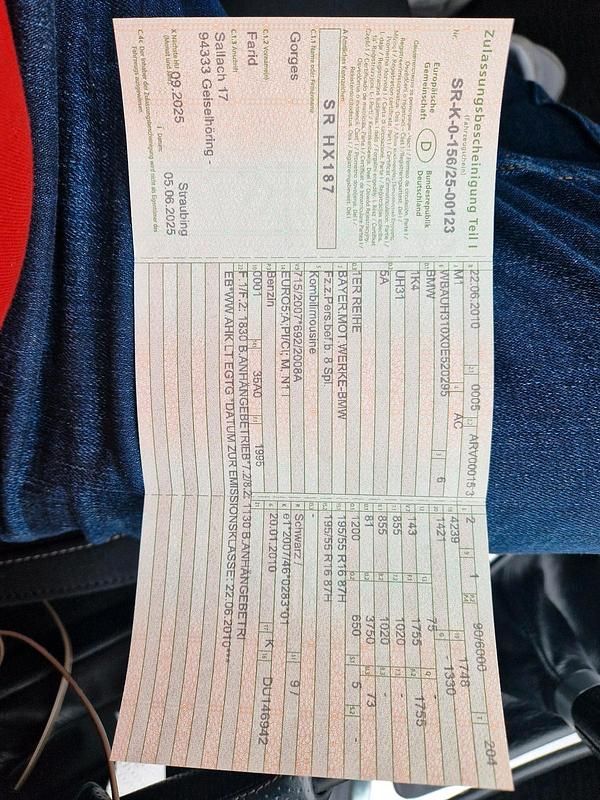 Zulassungsbescheinigung Teil I
(Fahrzeugschein)
Nr. SR-K-0-156/25-00123
Europäische Gemeinschaft
D
Bundesrepublik Deutschland
A Amtliches Kennzeichen
SR HX187
C.1.1 Name oder Firmenname
Gorges
C.1.2 Vorname(n)
Farid
C.1.3 Anschrift
Sallach 17
94333 Geiselhöring -
09.2025
Straubing
05.06.2025
C.4c Der Inhaber der Zulassungsbescheinigung wird nicht als Eigentümer des Fahrzeugs ausgewiesen.
22.06.2010 0005 ARV000153
M1 AC
WBAUH310X0E520295 6
BMW
1K4
UH31
5A
1ER REIHE
BAYER.MOT.WERKE-BMW
Fz.z.Pers.bef.b. 8 Spl.
Kombilimousine
715/2007*692/2008A
EURO5;A;PI/CI; M, N1 I
Benzin
0001 35A0 1995
F.1/F.2: 1830 B.ANHÄNGEBETRIEB*7.2/8.2: 1130 B.ANHÄNGEBETRI
EB*WW AHK LT.EGTG *DATUM ZUR EMISSIONSKLASSE: 22.06.2010***
2 1 90/6000 204
4239 1748
1421 -1330
75 -
143 1755 1755
855 1020 -
855 1020 -
81 3750 73
1200 650 5 -
195/55 R16 87H
195/55 R16 87H
-
Schwarz / 9 /
e1*2007/46*0283*01
20.01.2010 K DU146942